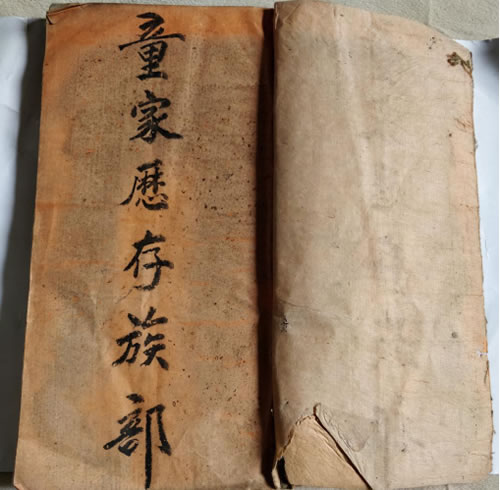 童家歷存族部